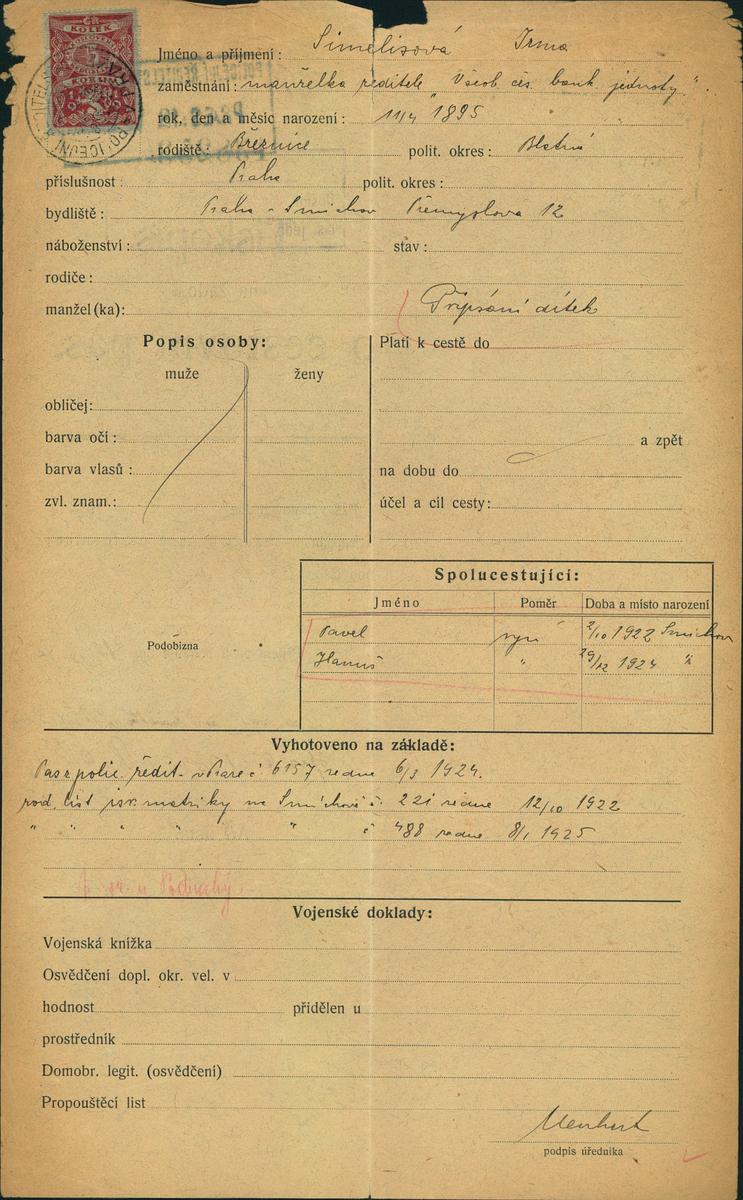 ČR
KOLEK
Jméno a příjmení: Simelisová Irma
zaměstnání: manželka ředitele „Všeob. čes. bank. jednoty."
rok, den a měsíc narození: 11/4 1895
rodiště: Březnice polit. okres: Blatná
příslušnost: Praha polit. okres:
bydliště: Praha - Smíchov Přemyslova 12
náboženství: stav:
rodiče:
manžel(ka): Připsání dítek
Popis osoby:
muže ženy
obličej:
barva očí:
barva vlasů:
zvl. znam.:
Platí k cestě do
a zpět
na dobu do
účel a cíl cesty:
Podobizna
Spolucestující:
Jméno Poměr Doba a místo narození
Pavel syn 2/10 1922 Smíchov
Hanuš " 29/12 1924 "
Vyhotoveno na základě:
Pas z polic. ředit. v Praze č 6157 ze dne 6/3 1924.
rod. list isr. matriky na Smíchově č. 221 ze dne 12/10 1922
" " " " " č 488 ze dne 8/1 1925
Vojenské doklady:
Vojenská knížka
Osvědčení dopl. okr. vel. v
hodnost přidělen u
prostředník
Domobr. legit. (osvědčení)
Propouštěcí list
podpis úředníka